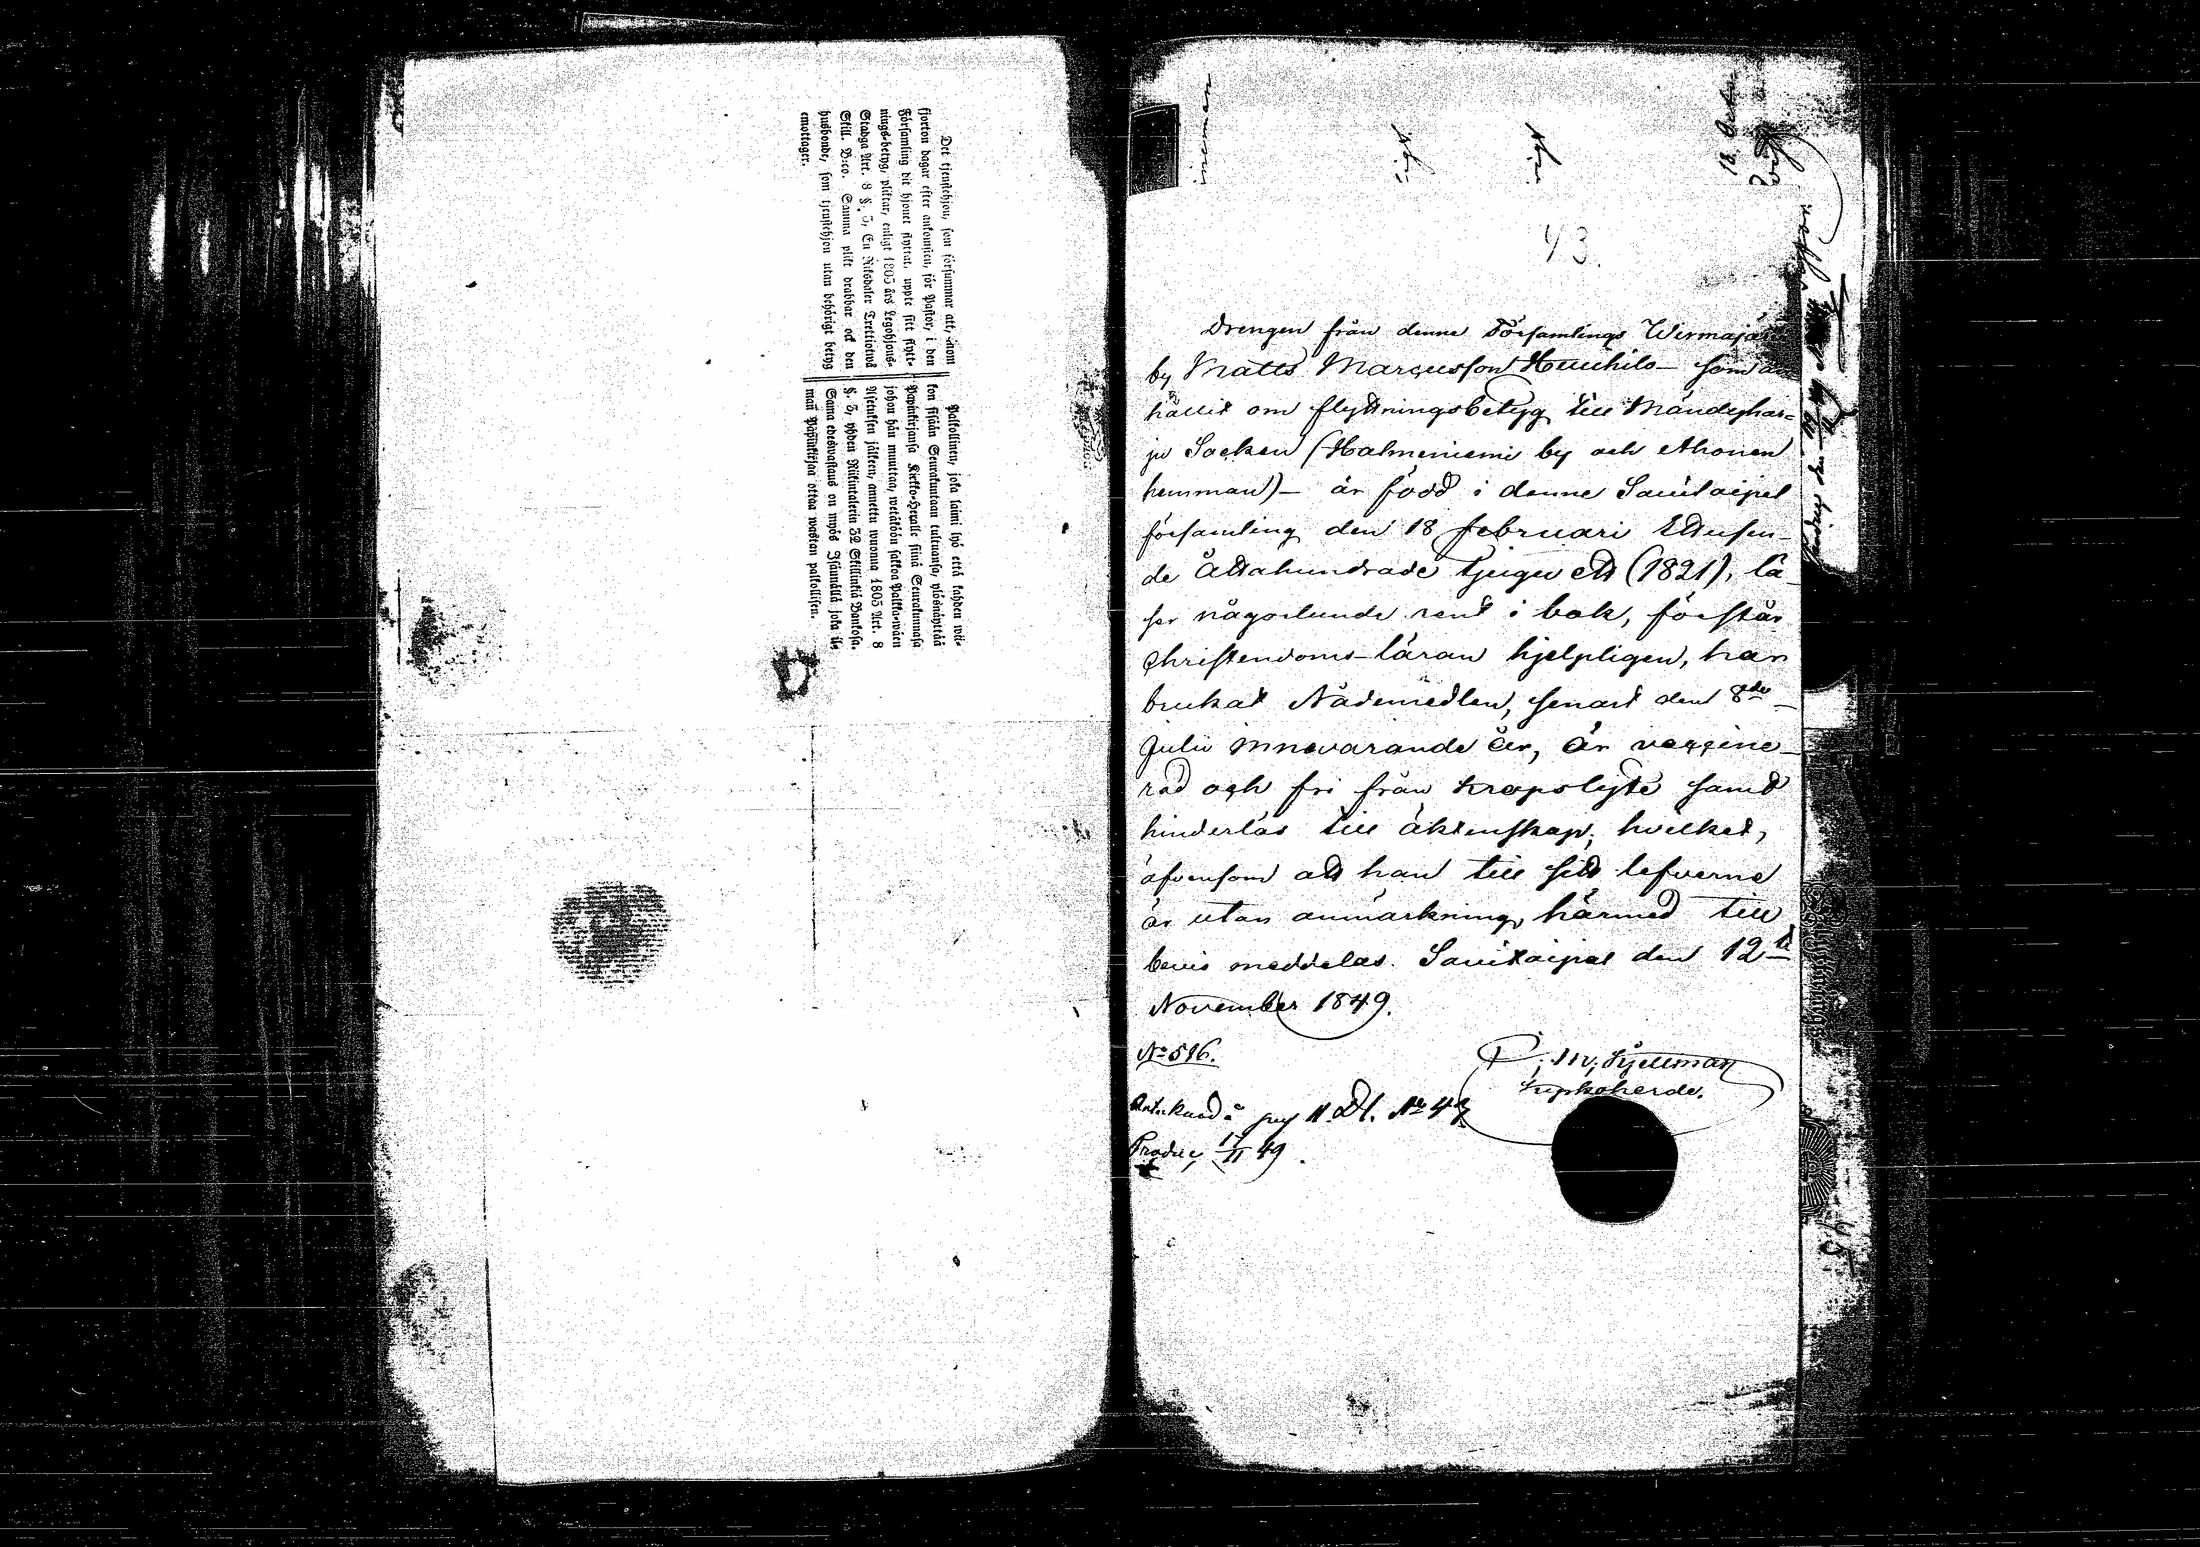 Det tjenstehjon, som försummar att, inom
fjorton dagar efter ankomsten, för Pastor, i den
Församling dit hjonet flyttat, uppte sitt flytt-
nings-betyg, pliktar, enligt 1805 års Legohjons-
Stadga Art. 8 §. 5, En Riksdaler Trettiotwå
Skill. B:co. Samma plikt drabbar ock den
husbonde, som tjenstehjon utan behörigt betyg
emottager.
Palkollinen, joka laimi lyö että kahden wii-
kon sisään Seurakuntaan tultuansa, ylösnäyttää
Papinkirjansa Kirkko-Herralle siinä Seurakunnassa
johon hän muuttaa, wetäköön sakkoa Palkko-wäen
Asetuksen jälkeen, annettu wuonna 1805 Art. 8
§. 5, yhden Riikintalerin 32 Skillinkiä Bankosa.
Sama edeswastaus on myös Isännällä joka il-
man Papinkirjaa ottaa wastan palkollisen.
43.
Drengen från denne Församlings Wirmajär
by Matts Marcusson Huuhilo som
hållit om flyttningsbetyg till Mändyhar-
ju Socken (Halmeniemi by och Ahonen
hemman) är född i denne Savitaipal
församling den 18 februari Ettusen-
de Åttahundrade tjugu ett (1821), lä-
ser någorlunda rent i bok, förstår
Christendoms-läran hjelpligen, har
brukat Nådemedlen, senast den 8de
Julii innevarande år, är vaccine-
rad och fri från kropslyte samt
hinderlös till äktenskap, hvilket,
äfvensom att han till sitt lefverne
är utan anmärkning, härmed till
bevis meddelas. Savitaipal den 12
November 1849.
No 516.
Kyrkoherde.
Antecknad å pag 11. No 43
Produc. 17/11 49.